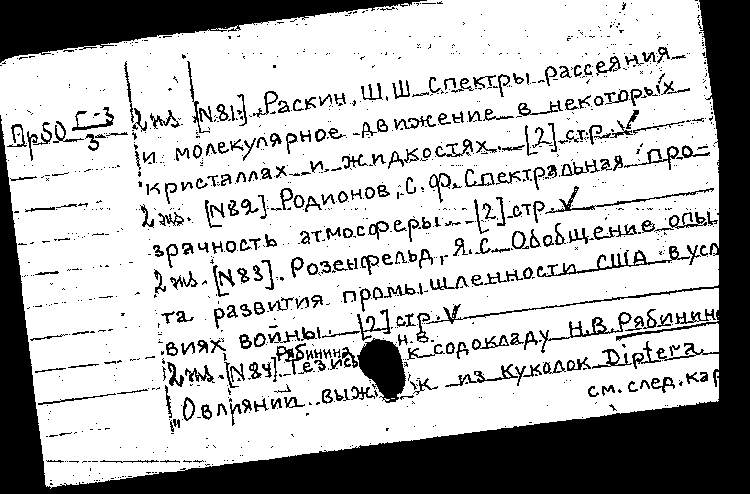 Пр50 Г-3/3
2 экз. [N81]. Раскин, Ш.Ш. Спектры рассеяния
и молекулярное движение в некоторых
кристаллах и жидкостях. [2] стр. V
2 экз. [N82]. Родионов, С.Ф. Спектральная про-
зрачность атмосферы. [2] стр. V
2 экз. [N83]. Розенфельд, Я.С. Обобщение опы-
та развития промышленности США в усл
виях войны. [2] стр. V
Рябинина Н.В.
2 экз. [N84]. Тезисы к содокладу Н.В. Рябинин
"О влиянии выж к из куколок Diptera.
см. след. кар